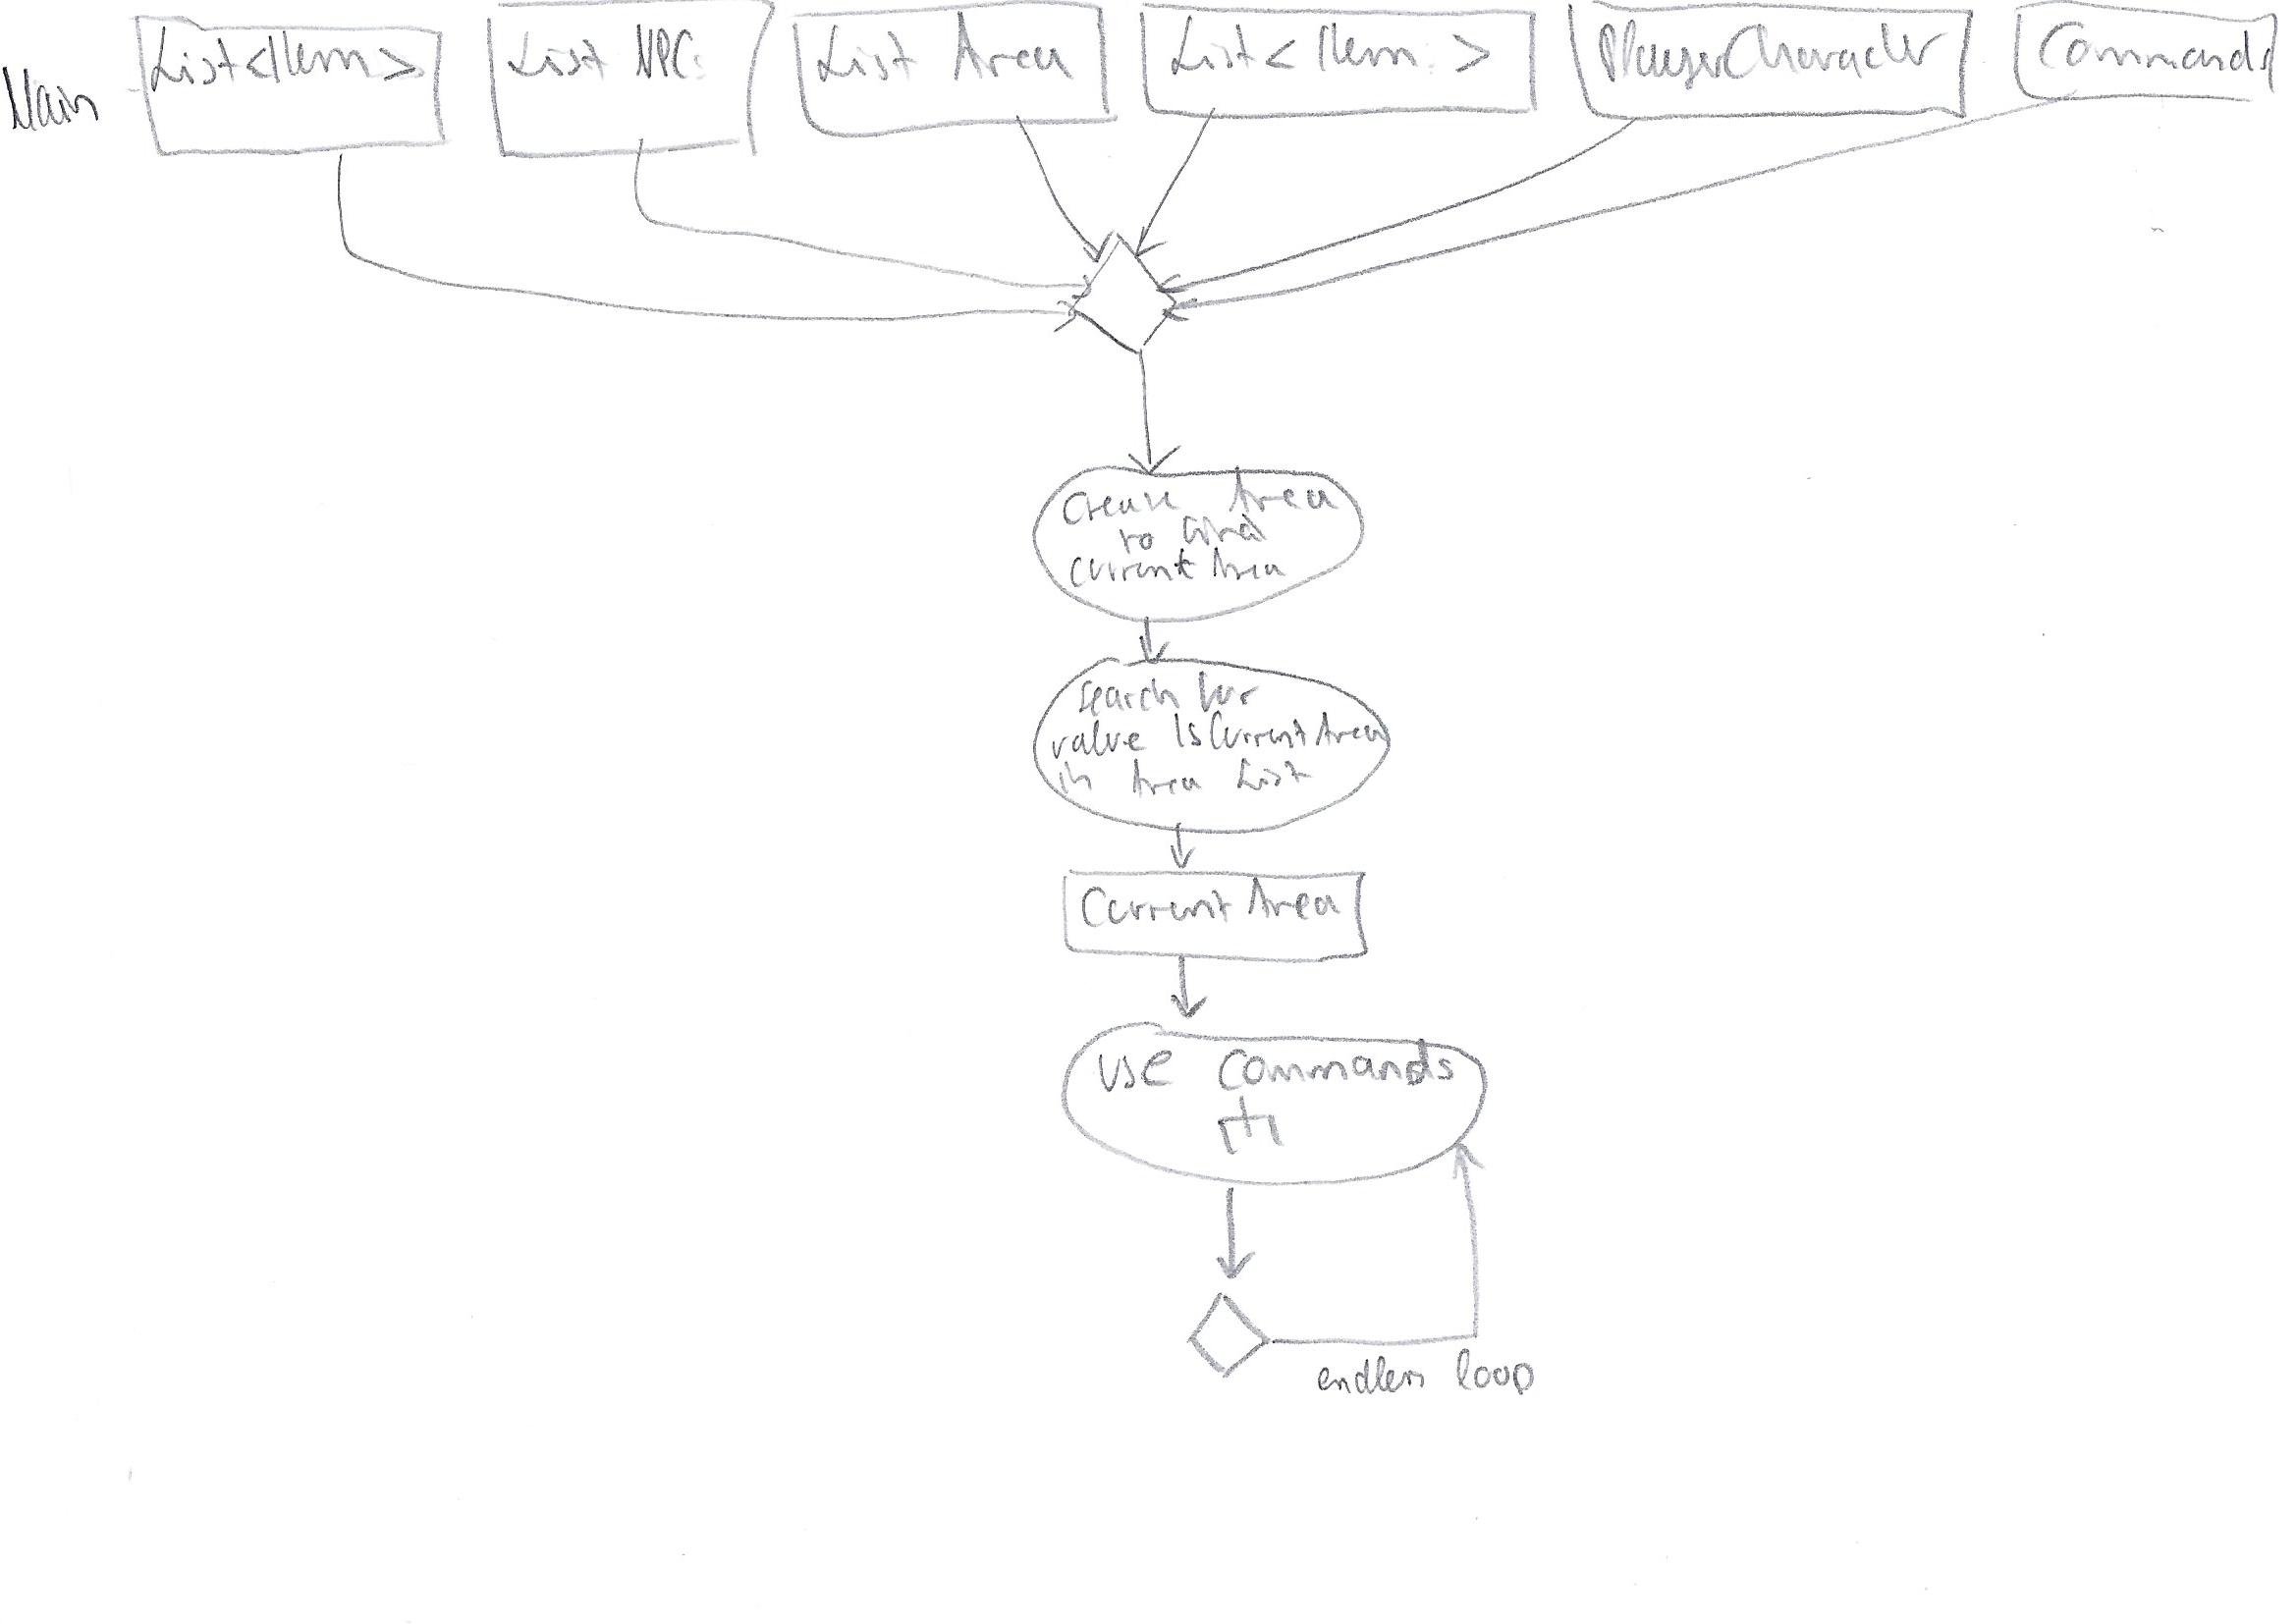 Main
List<Item>
List NPC
List Area
List<Item>
PlayerCharacter
Commands
Create Area
to find
currentArea
search for
value IsCurrentArea
in Area List
CurrentArea
use Commands
endless loop